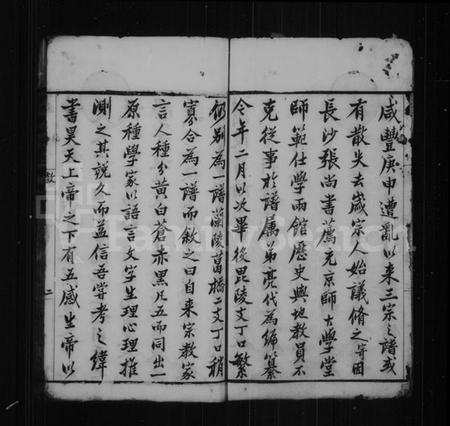 咸豐庚申遭亂以來三宗之譜或
有散失去歲宗人始議脩之寄因
長沙張尚書薦充京師大學堂
師範仕學兩館歷史輿地教員不
克從事於譜屬弟亮代為編纂
今年二月以次畢役毘陵丈丁口繁
別為一譜蘭陵葛橋二支丁口稍
寡合為一譜而敘之曰自来宗教家
言人種分黃白蒼赤黑凡五而同出一
原種學家以語言文字生理心理推
測之其說久而益信吾嘗考之緯
書昊天上帝之下有五感生帝以
敘
二
FamilySearch